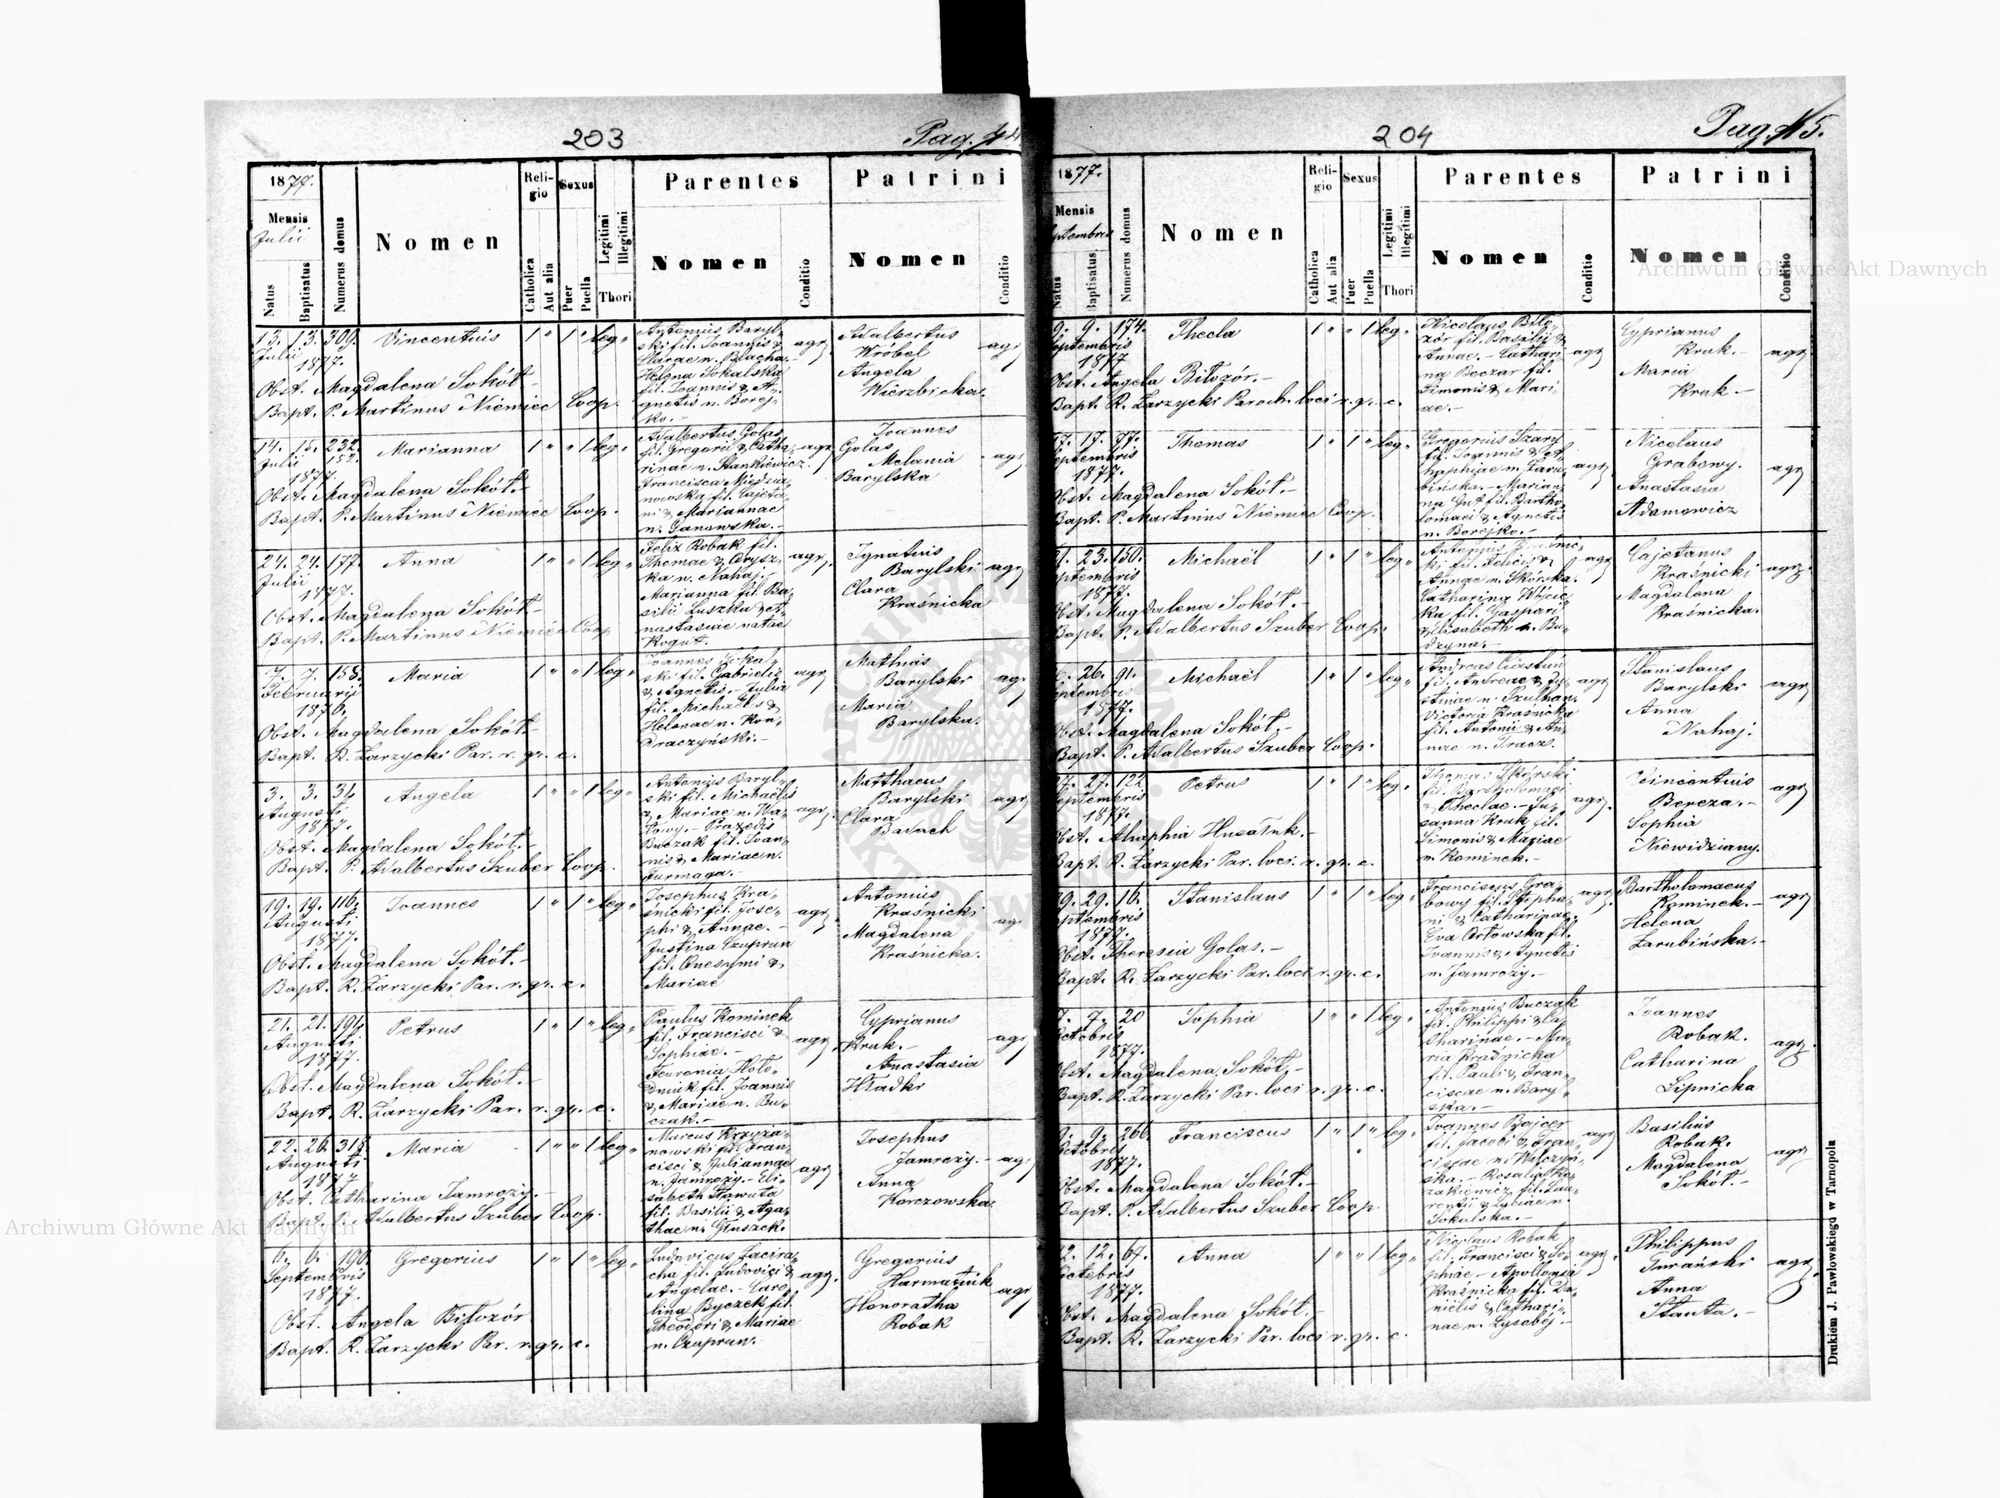 203
Pag. 44
1877.
Mensis
Julii
Natus
Baptisatus
Numerus domus
Nomen
Religio
Catholica
Aut alia
Sexus
Puer
Puella
Legitimi
Illegitimi
Thori
Parentes
Nomen
Conditio
Patrini
Nomen
Conditio
13. 13. 309. Vincentius 1 " 1 " leg.
Julii
1877.
Obst. Magdalena Sokół
Bapt. P. Martinus Niemiec Coop.
Antonius Baryl-
ski fil. Joannis &
Mariae n. Blacha.
Helena Sokalska
fil. Joannis & A-
gnetis n. Borej-
ko.
agr.
Adalbertus
Wróbel
Angela
Wierzbicka.
agr.
14. 15. 232. Marianna 1 " " 1 leg.
Julii 152.
1877.
Obst. Magdalena Sokół.
Bapt. P. Martinus Niemiec Coop.
Adalbertus Golas
fil. Gregorii & Catha-
rinae n. Stankiewicz.
Francisca
fil. Cajeta-
ni & Mariannae
n. Janowska.
agr.
Joannes
Golas
Melania
Barylska
agr.
24. 24. 177. Anna 1 " " 1 leg.
Julii
1877.
Obst. Magdalena Sokół
Bapt. P. Martinus Niemiec Coop
Felix Robak fil.
Thomae & Orysz-
ka n. Nahaj.
Marianna fil. Ba-
silii Luszka & A-
nastasiae natae
Kogut.
agr.
Ignatius
Barylski
Clara
Kraśnicka
agr.
7. 7. 158. Maria 1 " " 1 leg.
Februarii
1876.
Obst. Magdalena Sokół.
Bapt. R. Zarzycki Par. r. gr. c.
Joannes
ski fil. Gabrielis
& Agnetis. Julia
fil. Michaelis &
Helenae n. Kon-
draczyński.
agr.
Mathias
Barylski
Maria
Barylska.
agr.
3. 3. 31. Angela 1 " " 1 leg.
Augusti
1877.
Obst. Magdalena Sokół.
Bapt. P. Adalbertus Szuber Coop.
Antonius Baryl-
ski fil. Michaelis
& Mariae n. Ha-
towy. Praxedis
Buczak fil. Joan-
nis & Mariae n.
Furmaga.
agr.
Matthaeus
Barylski
Clara
Badach
agr.
19. 19. 116. Joannes 1 " 1 " leg.
Augusti
1877.
Obst. Magdalena Sokół.
Bapt. R. Zarzycki Par. r. gr. c.
Josephus Kra-
śnicki fil. Jose-
phi & Annae.
Justina Czuprun
fil. Onesymi &
Mariae
agr.
Antonius
Kraśnicki
Magdalena
Kraśnicka.
agr.
21. 21. 194. Petrus 1 " 1 " leg.
Augusti
1877.
Obst. Magdalena Sokół.
Bapt. R. Zarzycki Par. r. gr. c.
Paulus Kominek
fil. Francisci &
Sophiae.
Fevronia Hoło-
dniuk fil. Joannis
& Mariae n. Bu-
czak.
agr.
Cyprianus
Kruk.
Anastasia
Hładki
agr.
22. 26. 318. Maria 1 " " 1 leg.
Augusti
1877.
Obst. Catharina Jamrozy.
Bapt. P. Adalbertus Szuber Coop.
Marcus Krzyża-
nowski fil. Fran-
cisci & Juliannae
n. Jamrozy. Eli-
sabeth Stawuta
fil. Basilii & Aga-
thae n. Gruszek.
agr.
Josephus
Jamrozy.
Anna
Korczowska.
agr.
6. 6. 190. Gregorius 1 " 1 " leg.
Septembris
1877.
Obst. Angela Biłozór
Bapt. R. Zarzycki Par. r. gr. c.
Ludovicus Lacira-
cha fil. Ludovici &
Angelae. Caro-
lina Byczek fil.
Theodori & Mariae
n. Czuprun.
agr.
Gregorius
Harmatiuk
Honoratha
Robak
agr.
204
Pag. 45.
1877.
Mensis
Septembris
Natus
Baptisatus
Numerus domus
Nomen
Religio
Catholica
Aut alia
Sexus
Puer
Puella
Legitimi
Illegitimi
Thori
Parentes
Nomen
Conditio
Patrini
Nomen
Conditio
9. 9. 174. Thecla 1 " " 1 leg.
Septembris
1877
Obst. Angela Biłozór.
Bapt. R. Zarzycki Paroch. loci r. gr. c.
Nicolaus Biło-
zór fil. Basilii &
Annae. Cathari-
na Beczar fil.
Simonis & Mari-
ae.
agr.
Cyprianus
Kruk.
Maria
Kruk
agr.
17. 17. 77. Thomas 1 " 1 " leg.
Septembris
1877.
Obst. Magdalena Sokół.
Bapt. P. Martinus Niemiec Coop.
Gregorius Szary
fil. Joannis & A-
haphiae n. Zaru-
bińska. Marian-
na Gut fil. Bartho-
lomaei & Agnetis
n. Borejko.
agr.
Nicolaus
Grabowy.
Anastasia
Adamowicz
agr.
21. 23. 150. Michaël 1 " 1 " leg.
Septembris
1877.
Obst. Magdalena Sokół.
Bapt. P. Adalbertus Szuber Coop.
Antonius
ki fil. Felicis &
Annae n. Skórska.
Catharina Wójcic-
ka fil. Gaspari
& Elisabeth n. Bu-
dzyna.
agr.
Cajetanus
Kraśnicki
Magdalena
Kraśnicka.
agr.
26. 91. Michaël 1 " 1 " leg.
Septembri
1877.
Obst. Magdalena Sokół.
Bapt. P. Adalbertus Szuber Coop.
Andreas
fil. Andreae &
n. Szulhan.
Victoria Kraśnicka
fil. Antonii & An-
nae n. Tracz.
agr.
Stanislaus
Barylski
Anna
Nahaj.
agr.
27. 27. 122 Petrus 1 " 1 " leg.
Septembris
1877.
Obst. Ahaphia
Bapt. R. Zarzycki Par. loci. r. gr. c.
Thomas Skórski
fil. Bartholomaei
& Theclae. Su-
sanna Kruk fil.
Simonis & Mariae
n. Kominek.
agr.
Vincentius
Bereza.
Sophia
Niewidziany.
agr.
29. 29. 16. Stanislaus 1 " 1 " leg.
Septembris
1877.
Obst. Theresia Golas.
Bapt. R. Zarzycki Par. loci r. gr. c.
Franciscus Gra-
bowy fil. Stepha-
ni & Catharinae.
Eva Orłowska fil.
Joannis & Agnetis
n. Jamrozy.
agr.
Bartholomaeus
Kominek.
Helena
Zarubińska.
agr.
7. 7. 20 Sophia 1 " " 1 leg.
Octobris
1877.
Obst. Magdalena Sokół.
Bapt. R. Zarzycki Par. loci r. gr. c.
Antonius Buczak
fil. Philippi & Ca-
tharinae. Ma-
ria Kraśnicka
fil. Pauli & Fran-
ciscae n. Baryl-
ska.
Joannes
Robak.
Catharina
Lipnicka
agr.
9. 9. 266. Franciscus 1 " 1 " leg.
Octobris
1877.
Obst. Magdalena Sokół.
Bapt. P. Adalbertus Szuber Coop.
Joannes Bojcer
fil. Jacobi & Fran-
ciscae n. Wilczyń-
ska. Rosalia Ko-
zakiewicz fil. Lau-
rentii & Luciae n.
Sokalska.
agr.
Basilius
Robak.
Magdalena
Sokół.
agr.
12. 12. 67. Anna 1 " " 1 leg.
Octobris
1877.
Obst. Magdalena Sokół.
Bapt. R. Zarzycki Par. loci r. gr. c.
Nicolaus Robak
fil. Francisci & So-
phiae. Apollonia
Kraśnicka fil. Da-
nielis & Cathari-
nae n. Łysobej.
agr.
Philippus
Anna
Stanta.
agr.
Drukiem J. Pawłowskiego w Tarnopolu
Archiwum Główne Akt Dawnych
Archiwum Główne Akt Dawnych